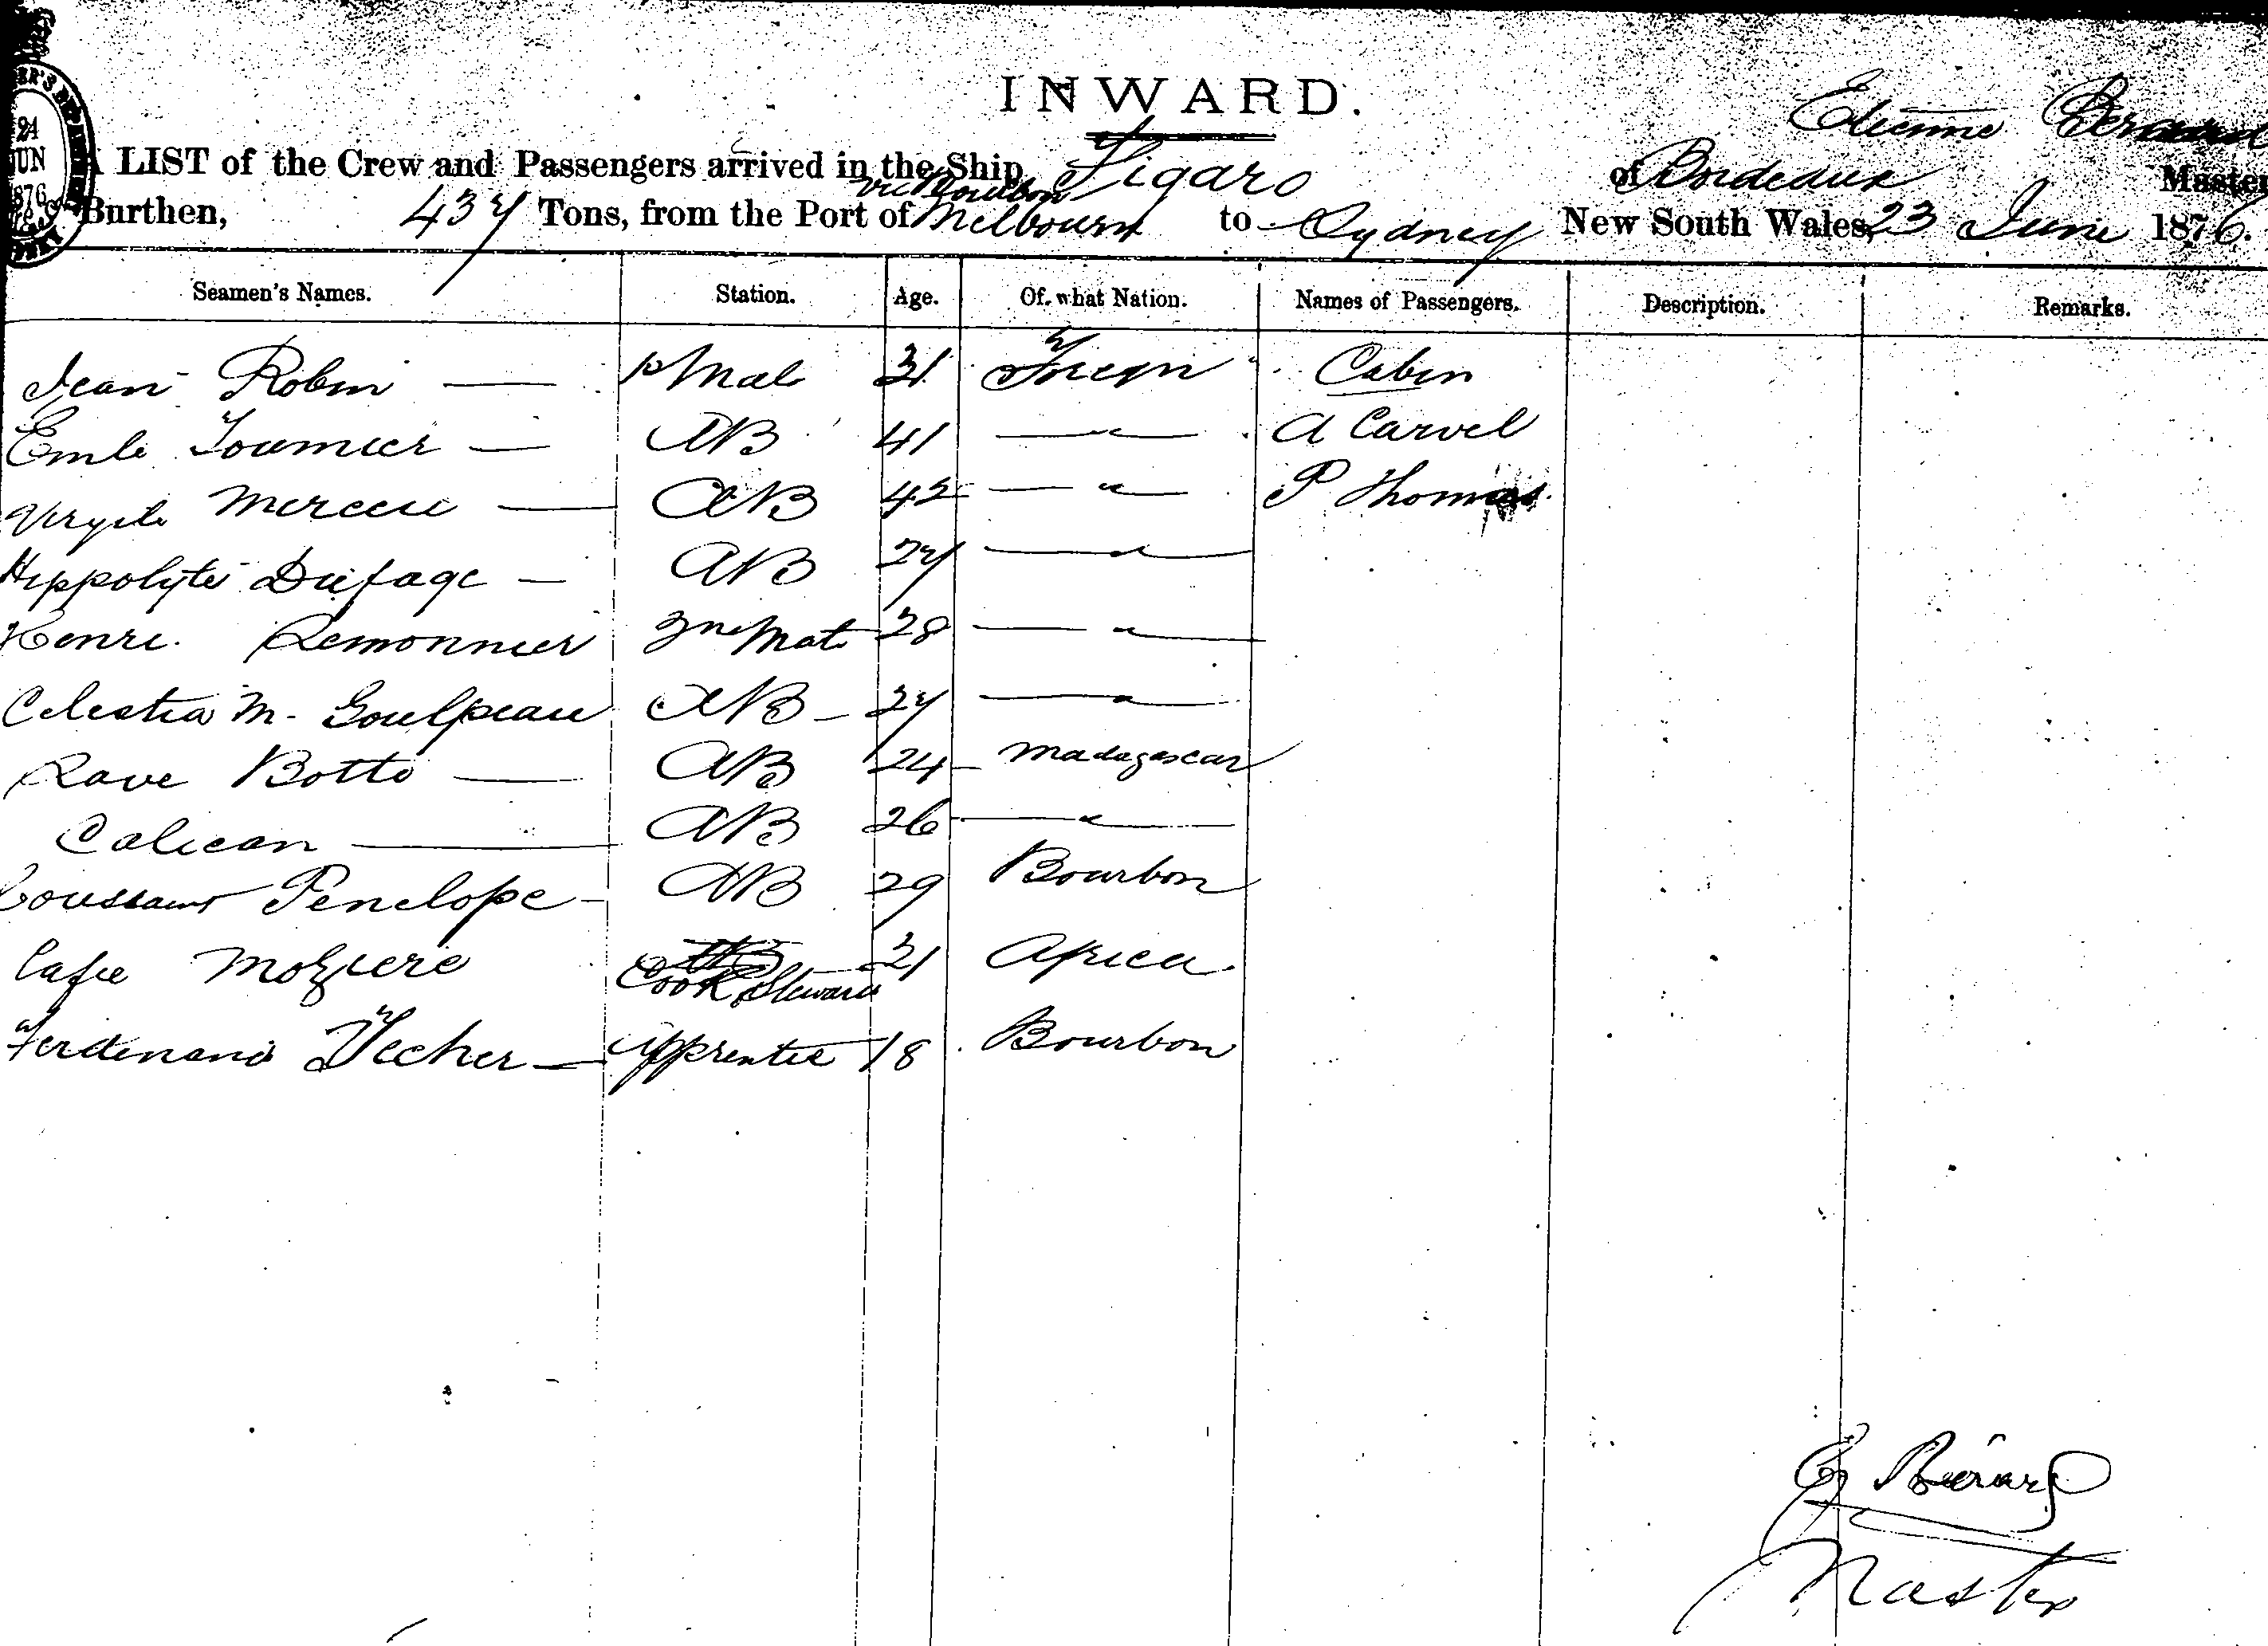 INWARD.
Etienne Berard
A LIST of the Crew and Passengers arrived in the Ship Figaro of Bordeaux Master
via Bourbon
Burthen, 437 Tons, from the Port of Melbourn to Sydney New South Wales, 23 June 1876.
24
JUN
1876
Seamen's Names. Station. Age. Of what Nation. Names of Passengers. Description. Remarks.
Jean Robin — Mate 31 Foreign Cabin
Emile Tournier — AB 41 — " — A Carvel
Virgile Mercere — AB 42 — " — P Thomas
Hippolyte Dufage — AB 27 — " —
Henri Lemonnier 2nd Mate 28 — " —
Celestia M. Goulpeau AB 27 — " —
Rave Botto — AB 24 Madagascar
Calican — AB 26 — " —
Toussaint Penelope AB 29 Bourbon
Cafre Moziere Cook Steward 31 Africa
Ferdinand Techer — Apprentice 18 Bourbon
E Bérard
Master